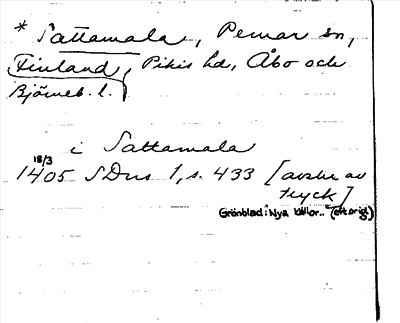 * Sattamala, Pemar sn,
Finland, Pikis hd, Åbo och
Björneb. l.
i Sattamala
18/3
1405 SDns 1, s. 433 [avskr av
tryck]
Grönblad: Nya källor.. (eft orig)